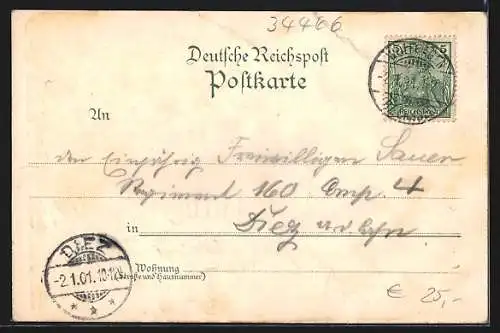 34466
Deutsche Reichspost
Postkarte
5
An
den Einjährig Freiwilligen Sauer
Regiment 160 Comp. 4
in Diez a. d. Lahn
DIEZ
-2.1.01. 10-12V.
Wohnung
(Straße und Hausnummer)
€ 25,-